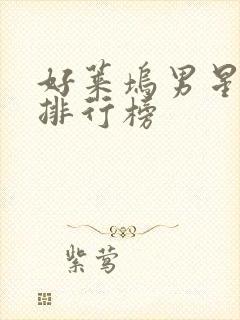 好莱坞男星
排行榜
紫莺